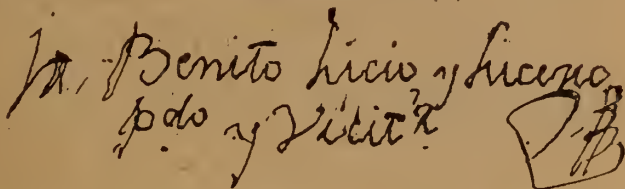 Fr. Benito Lucio, y Lucena
pdo y Vicitr